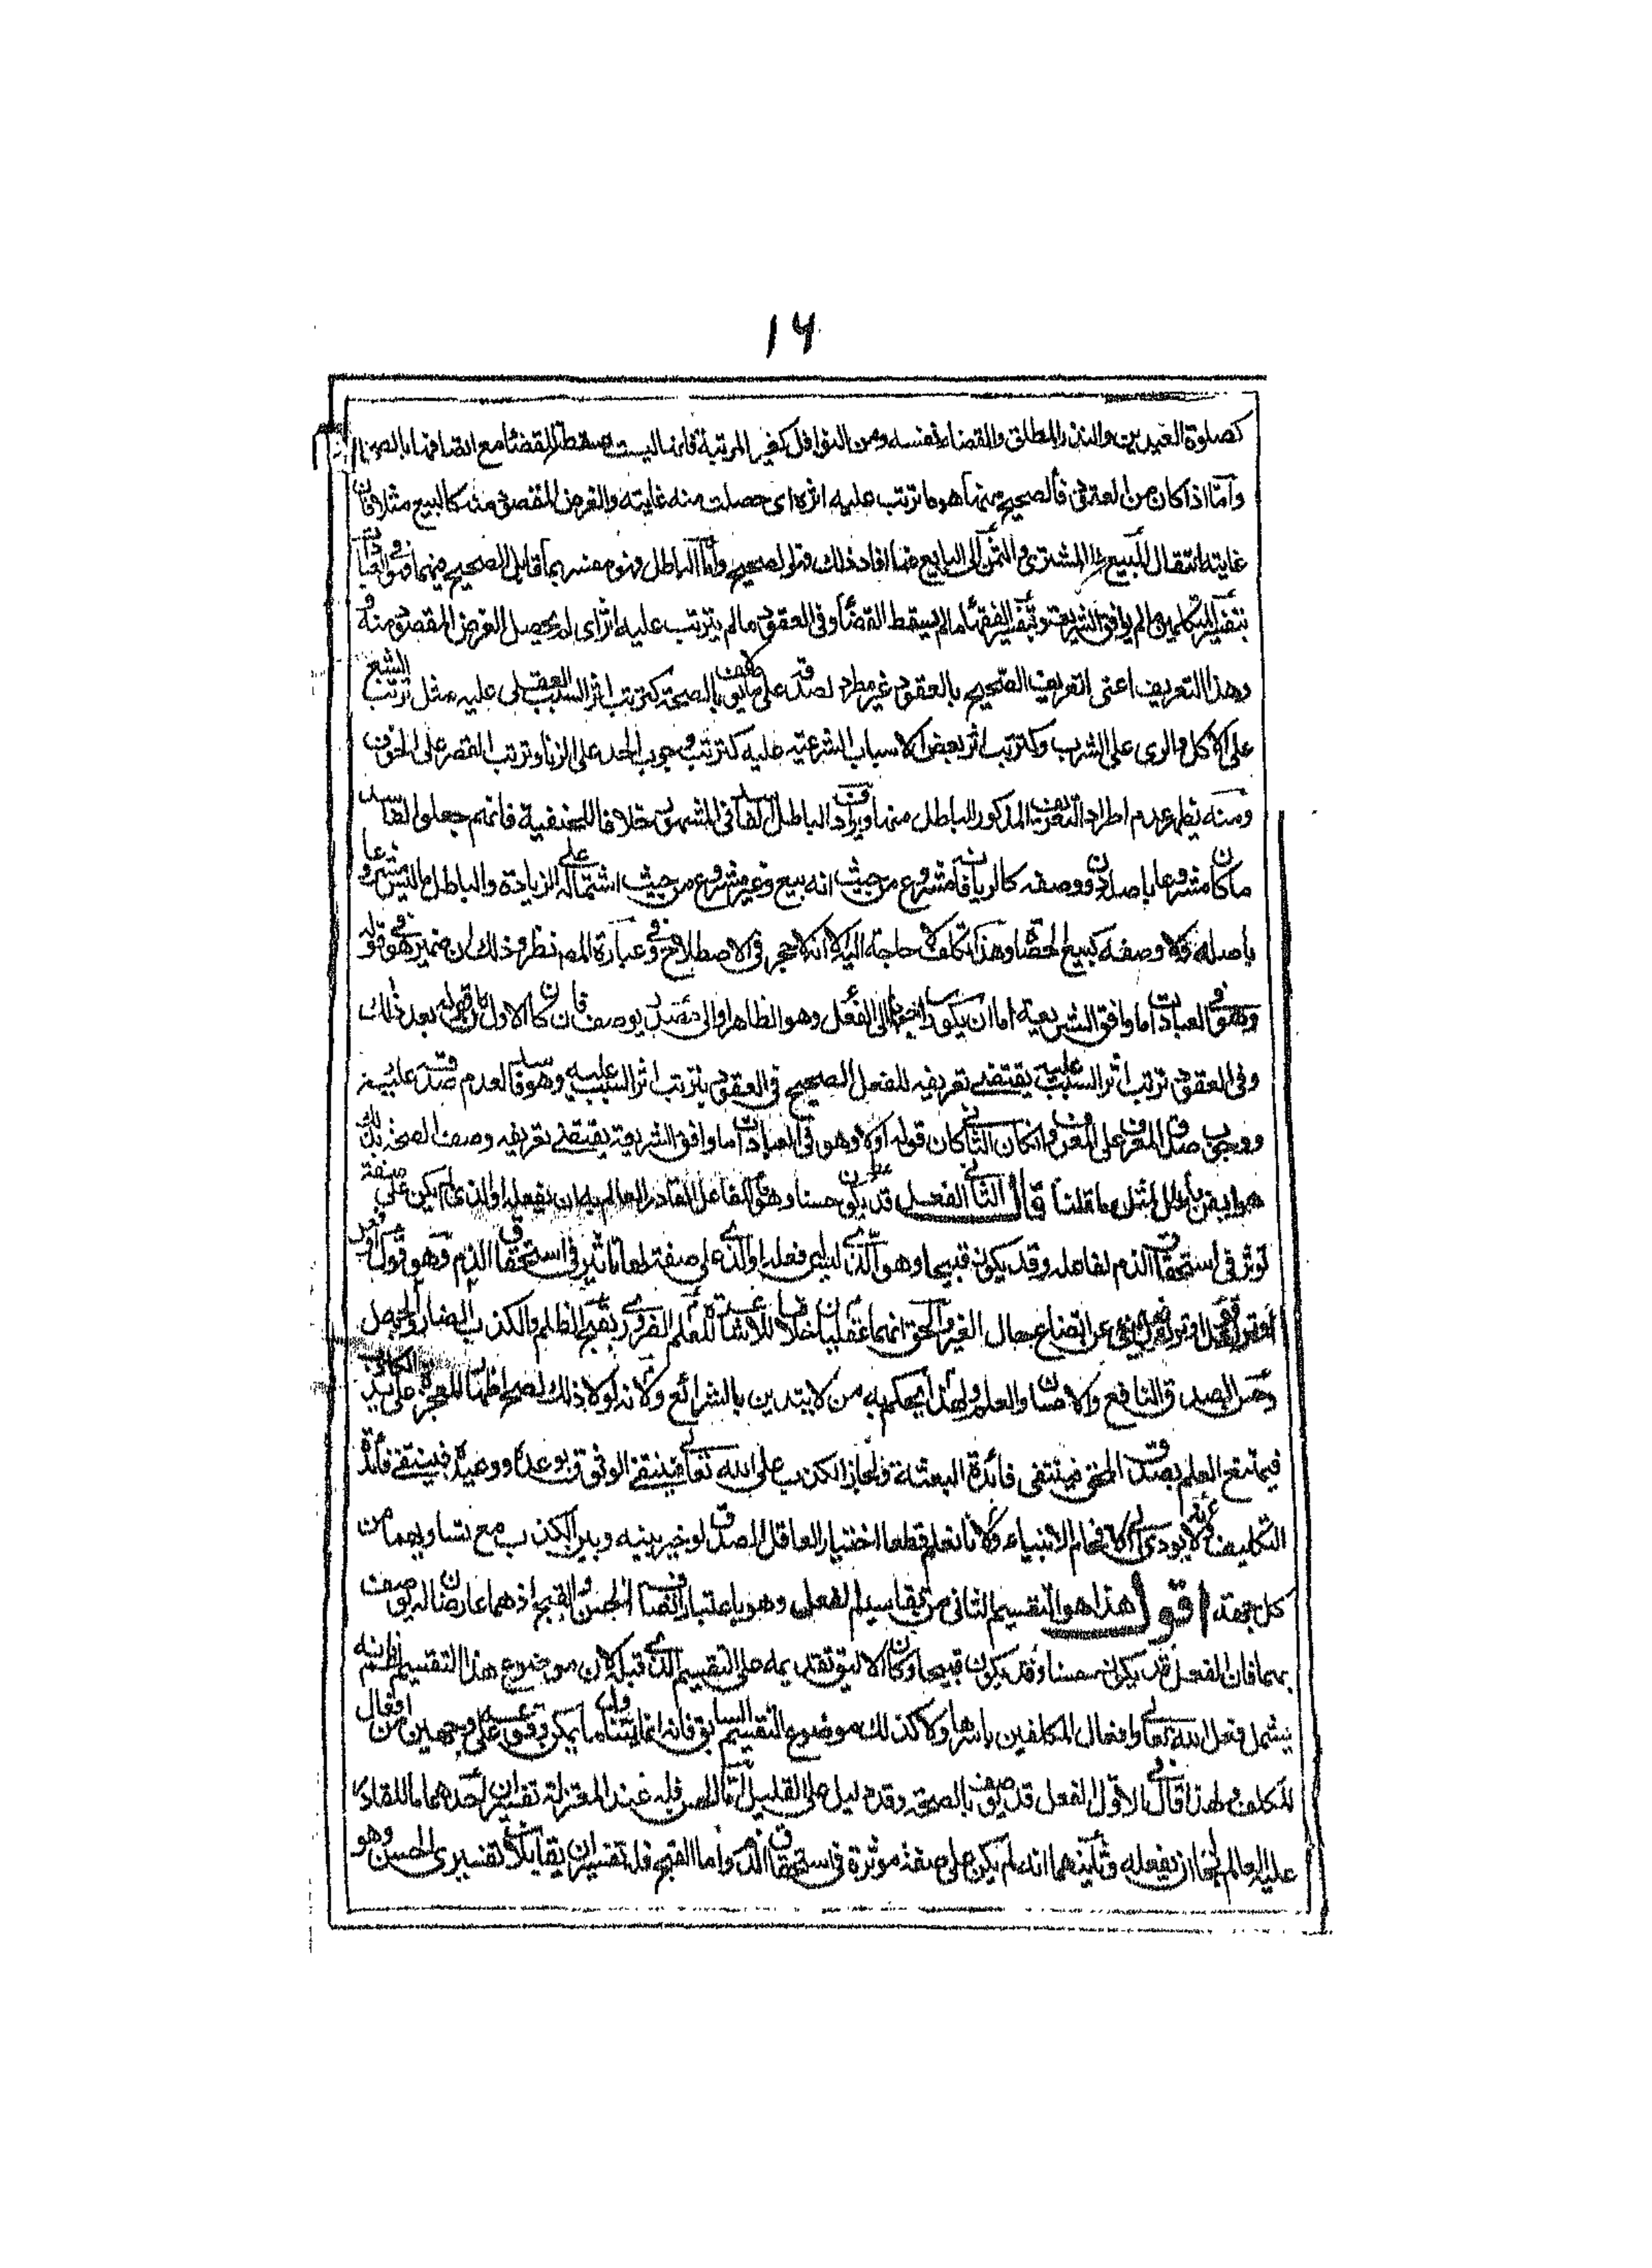 ١٦
كصلوة العيدين والنذر المطلق والقضاء نفسه ومن النوافل كغير المرتبة فانها ليست مسقطة للقضاء مع اتصافها بالصحة
وامّا اذا كان من العقود فالصحيح منها هو ما ترتب عليه اثره اى حصلت منه غايته والغرض المقصود منه كالبيع مثلا فان
غايته انتقال المبيع الى المشترى والثمن الى البايع فما افاد ذلك فهو الصحيح وامّا الباطل فهو مفسر بما قابل الصحيح منهما فهو فى العبادات
بتفسير المتكلمين ما لم يوافق الشريعة وبتفسير الفقهاء ما لم يسقط القضاء وفى العقود ما لم يترتب عليه اثره اى لم يحصل الغرض المقصود منه
وهذا التعريف اعنى تعريف الصحيح بالعقود غير مطرد لصدقه على ما لا يوصف بالصحة كترتب اثر السبب العقلى عليه مثل ترتب الشبع
على الاكل والرى على الشرب وكترتب اثر بعض الاسباب الشرعية عليه كترتب وجوب الحد على الزنا وترتب القصر على الخوف
ومنه يظهر عدم اطراد التعريف المذكور للباطل منها ويرادف الباطل الفاسد فى المشهور خلافا للحنفية فانهم جعلوا الفاسد
ما كان مشروعا باصله دون وصفه كالربا فانه مشروع من حيث انه بيع وغير مشروع من حيث اشتماله على الزيادة والباطل ما ليس مشروعا
باصله ولا وصفه كبيع الحصاة وهذا تكلف لا حاجة اليه الا انه لا حجر فى الاصطلاح وفى عبارة المص نظر وذلك لان ضمير هو فى قوله
وهو فى العبادات ما وافق الشريعة اما ان يكون راجعا الى الفعل وهو الظاهر او الى مصدر يوصف فان كان الاول كان قوله بعد ذلك
وفى العقود ترتب اثر السبب عليه يقتضى تعريفه للفعل الصحيح فى العقود بترتب اثر السبب عليه وهو فاسد لعدم صدقه عليه
ووجوب صدق المعرف على المعرف وان كان الثانى كان قوله اولا وهو فى العبادات ما وافق الشريعة يقتضى تعريفه وصف الصحة بذلك
قال الثانى الفعل قد يكون حسنا وهو ما للفاعل القادر العالم به ان يفعله او الذى لم يكن على صفة
تؤثر فى استحقاق الذم لفاعله وقد يكون قبيحا وهو الذى ليس فعله او الذى على صفة لها تاثير فى استحقاق الذم وهو قول او فعل
او ترك قول او ترك فعل ينبئ عن اتضاع حال الغير والحق انهما عقليان خلافا للاشاعرة للعلم الضرورى بقبح الظلم والكذب الضار والجهل
وحسن الصدق النافع والاحسان والعلم ولهذا يحكم به من لا يتدين بالشرائع ولانه لولا ذلك لصح اظهار المعجزة على يد الكاذب
فيمتنع العلم بصدق المحق فينتفى فائدة البعثة ولجاز الكذب على الله تعالى فينتفى الوثوق بوعده ووعيده فينتفى فائدة
التكليف ولانه يؤدى الى افحام الانبياء ولانا نعلم قطعا اختيار العاقل الصدق لو خير بينه وبين الكذب مع تساويهما من
كل جهة اقول هذا هو التقسيم الثانى من تقاسيم الفعل وهو باعتبار اتصافه بالحسن والقبح اذ هما عارضان له يوصف
بهما فان الفعل قد يكون حسنا وقد يكون قبيحا وكان الاليق تقديمه على التقسيم الذى قبله لان موضوع هذا التقسيم فانه
يشمل فعل الله تعالى وافعال المكلفين باسرها ولا كذلك موضوع التقسيم السابق فانه انما يتناول ما يمكن وقوعه على وجهين من افعال
المكلف ولهذا قال فى الاول الفعل قد يوصف بالصحة وقد دليل على التقليل امّا الحسن فله عند المعتزلة تفسيران احدهما ما للقادر
عليه العالم بحاله ان يفعله وثانيهما انه ما لم يكن على صفة مؤثرة فى استحقاق الذم واما القبيح فله تفسيران يقابلان تفسيرى الحسن وهو